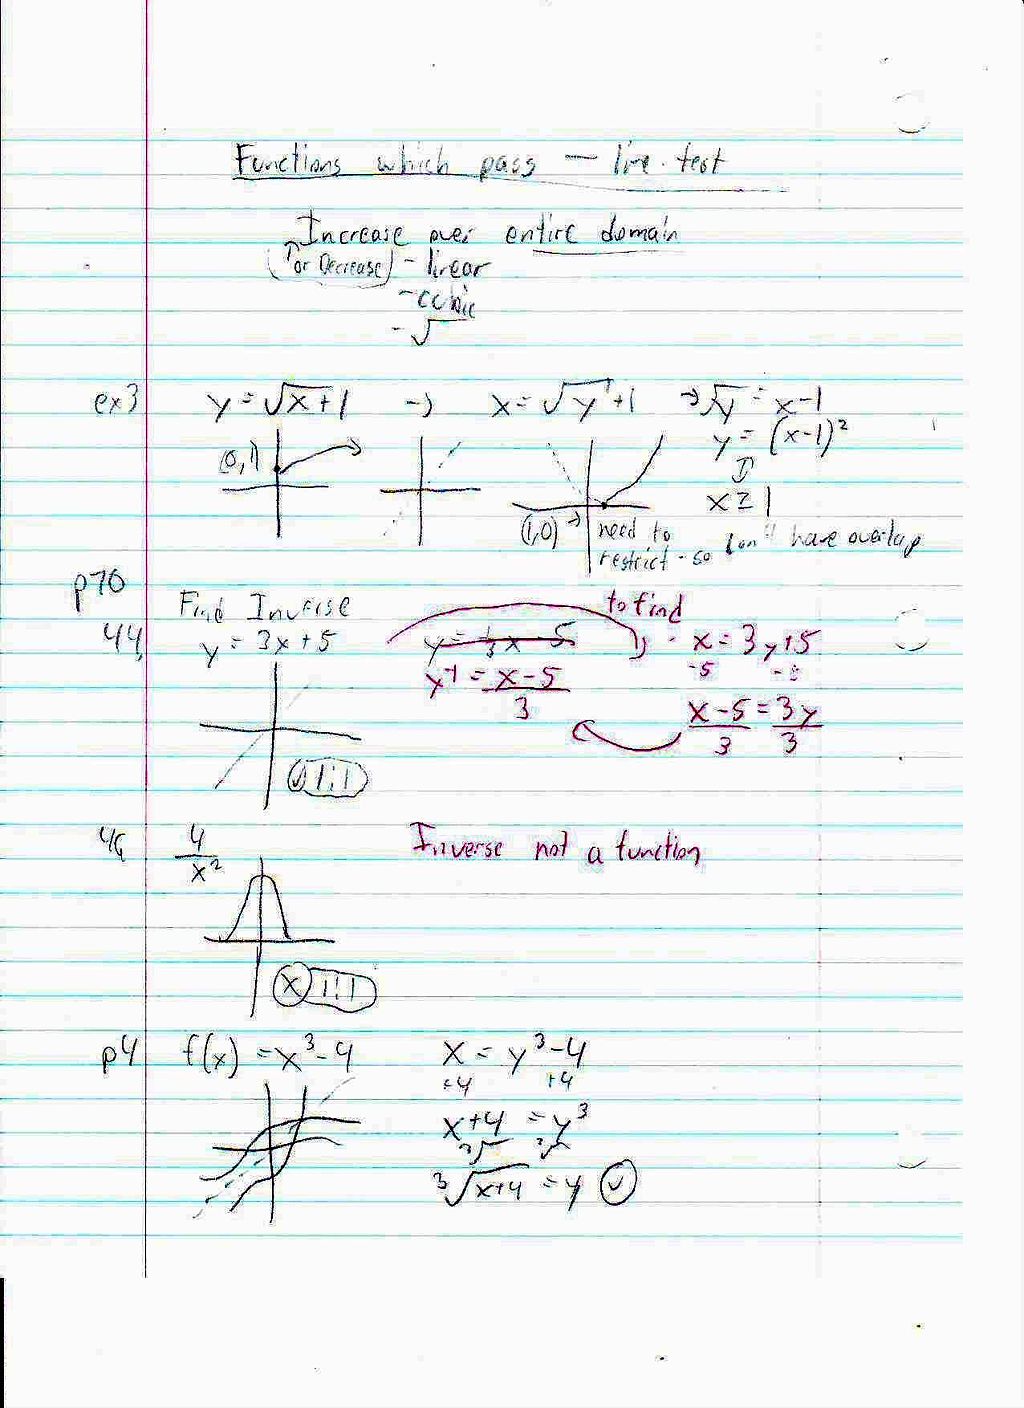 Functions which pass — line test
Increase over entire domain
(↑ or Decrease) - linear
- cubic
- √
ex3 y = √x + 1 → x = √y + 1 → √y = x - 1
(0,1) y = (x-1)²
x ≥ 1
(1,0) → need to
restrict - so don't have overlap
p70
Find Inverse to find
44. y = 3x + 5 y = 1/3 x - 5 x = 3y + 5
-5 -5
y⁻¹ = x - 5 / 3
x - 5 = 3y
3 3
✓ 1:1
46 4 / x² Inverse not a function
x 1:1
p4 f(x) = x³ - 4 x = y³ - 4
+4 +4
x + 4 = y³
³√ ³√
³√x+4 = y ✓